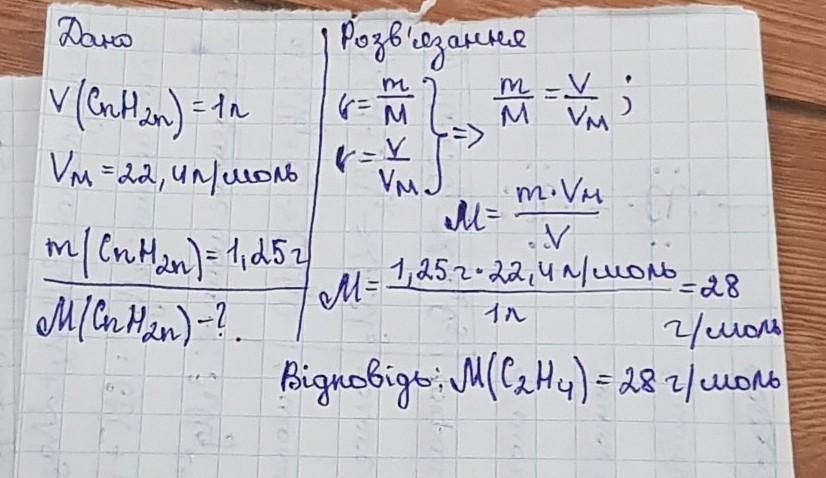 Дано
V(CnH2n) = 1л
VM = 22,4л/моль
m(CnH2n) = 1,25г
M(CnH2n) - ?
Розв'язання
ν = m/M
ν = V/VM
} => m/M = V/VM ;
M = m·VM/V
M = 1,25г·22,4л/моль/1л = 28
г/моль
Відповідь: M(C2H4) = 28 г/моль